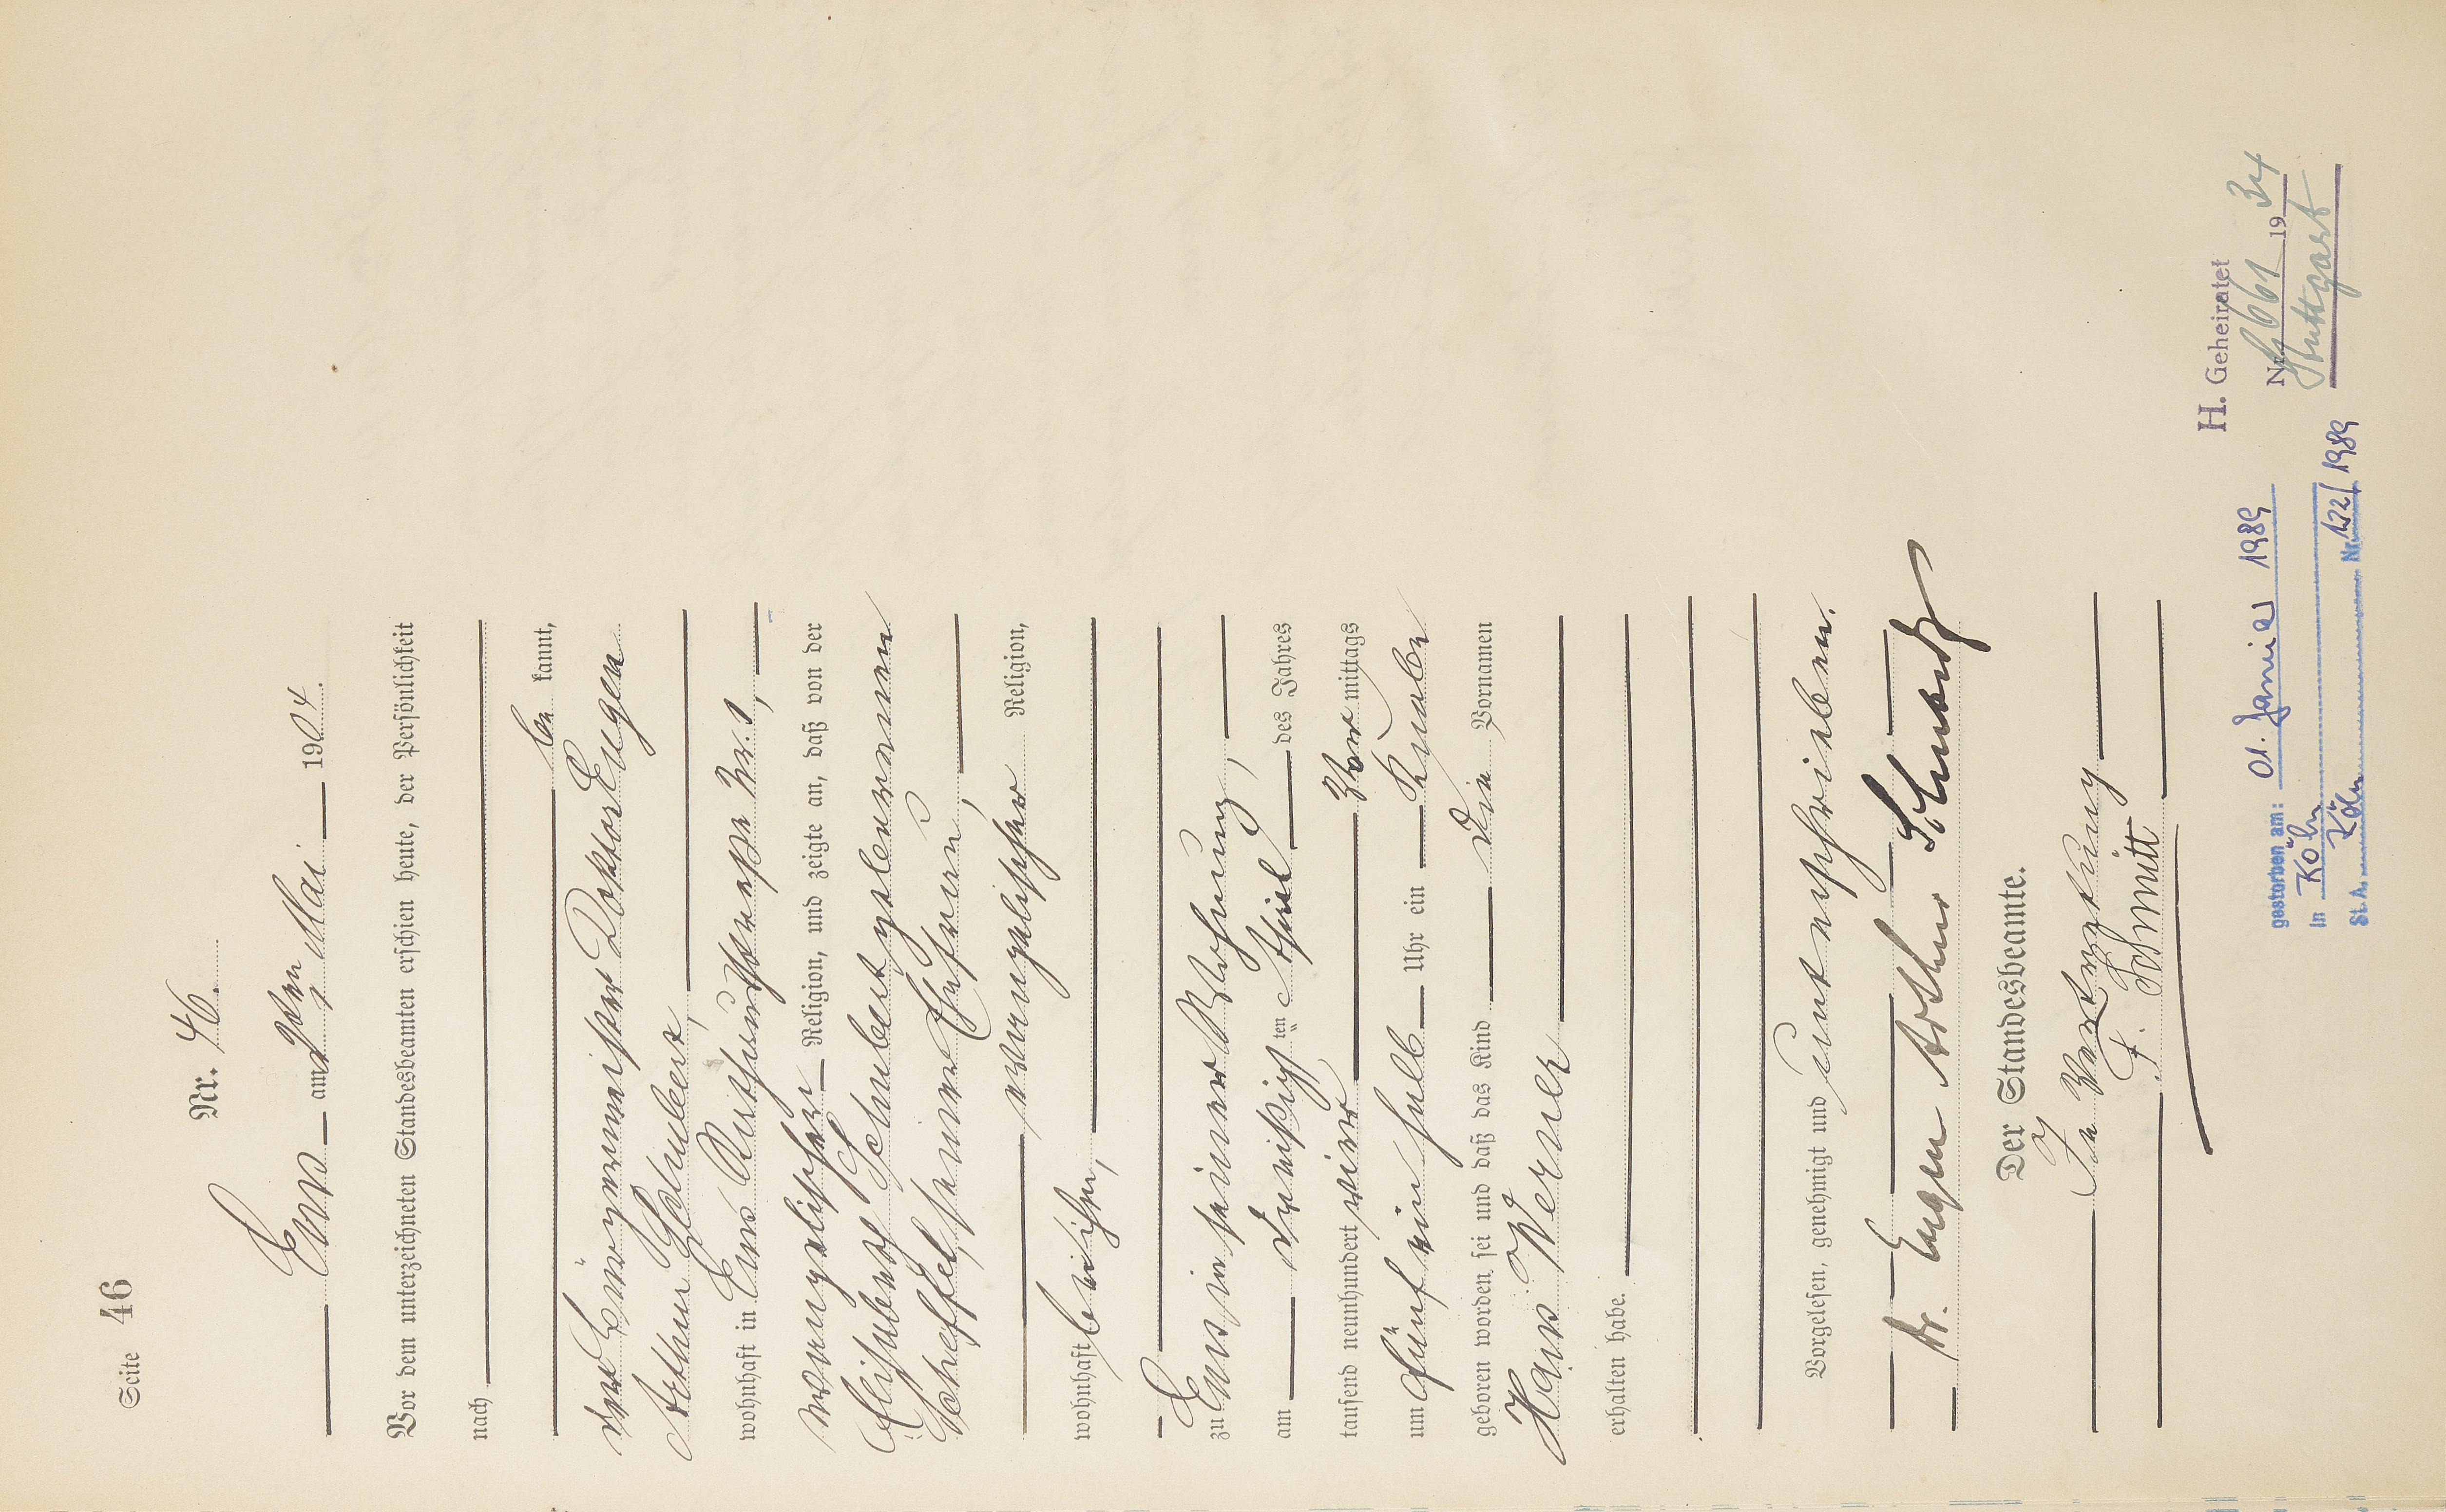 Seite 46
Nr. 46.
Ems am 2ten Mai 1904.
Vor dem unterzeichneten Standesbeamten erschien heute, der Persönlichkeit
nach
be kannt,
der Bürgermeister Doktor Eugen
Arthur Schubert,
wohnhaft in Ems Rathaus Nr. 1,
evangelischer Religion, und zeigte an, daß von der
Elisabeth Schubert geborenen
Scheffel, seiner Ehefrau,
evangelischer Religion,
wohnhaft bei ihm,
zu Ems in seiner Wohnung,
am dreißigsten April des Jahres
tausend neunhundert vier Vor mittags
um fünf ein halb Uhr ein Knabe
geboren worden sei und daß das Kind die Vornamen
Hans Werner
erhalten habe.
Vorgelesen, genehmigt und unterschrieben.
Dr. Eugen Arthur Schubert
Der Standesbeamte.
In Vertretung
F. Schmitt
H. Geheiratet
Nr. 1934
Stuttgart
gestorben am: 01. Januar 1989
in Köln
St. A. Köln Nr. 122/1989